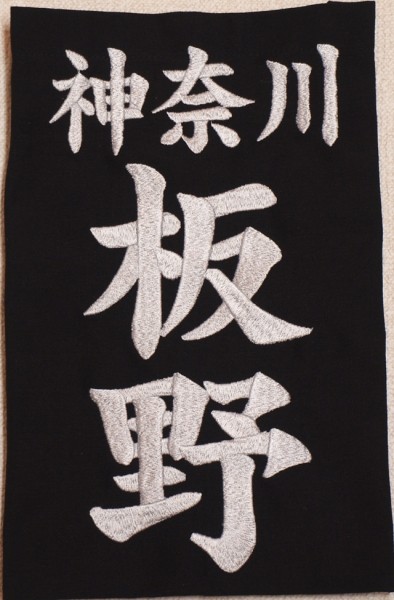 神奈川
板野